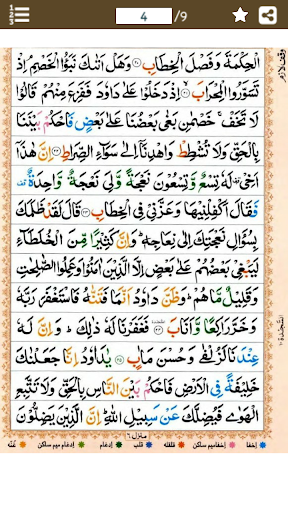 4 /9
وقف لازم
الْحِكْمَةَ وَفَصْلَ الْخِطَابِ ۞ وَهَلْ اَتٰىكَ نَبَؤُا الْخَصْمِ اِذْ
تَسَوَّرُوا الْمِحْرَابَ ۞ اِذْ دَخَلُوْا عَلٰى دَاوٗدَ فَفَزِعَ مِنْهُمْ قَالُوْا
لَا تَخَفْ ۚ خَصْمٰنِ بَغٰى بَعْضُنَا عَلٰى بَعْضٍ فَاحْكُمْ بَيْنَنَا
بِالْحَقِّ وَلَا تُشْطِطْ وَاهْدِنَاۤ اِلٰى سَوَآءِ الصِّرَاطِ ۞ اِنَّ هٰذَاۤ
اَخِيْ لَهٗ تِسْعٌ وَّتِسْعُوْنَ نَعْجَةً وَّلِيَ نَعْجَةٌ وَّاحِدَةٌ
فَقَالَ اَكْفِلْنِيْهَا وَعَزَّنِيْ فِي الْخِطَابِ ۞ قَالَ لَقَدْ ظَلَمَكَ
بِسُؤَالِ نَعْجَتِكَ اِلٰى نِعَاجِهٖ ؕ وَاِنَّ كَثِيْرًا مِّنَ الْخُلَطَآءِ
لَيَبْغِيْ بَعْضُهُمْ عَلٰى بَعْضٍ اِلَّا الَّذِيْنَ اٰمَنُوْا وَعَمِلُوا الصّٰلِحٰتِ
وَقَلِيْلٌ مَّا هُمْ ؕ وَظَنَّ دَاوٗدُ اَنَّمَا فَتَنّٰهُ فَاسْتَغْفَرَ رَبَّهٗ
وَخَرَّ رَاكِعًا وَّاَنَابَ ۞ فَغَفَرْنَا لَهٗ ذٰلِكَ ؕ وَاِنَّ لَهٗ
عِنْدَنَا لَزُلْفٰى وَحُسْنَ مَاٰبٍ ۞ يٰدَاوٗدُ اِنَّا جَعَلْنٰكَ
خَلِيْفَةً فِي الْاَرْضِ فَاحْكُمْ بَيْنَ النَّاسِ بِالْحَقِّ وَلَا تَتَّبِعِ
الْهَوٰى فَيُضِلَّكَ عَنْ سَبِيْلِ اللّٰهِ ؕ اِنَّ الَّذِيْنَ يَضِلُّوْنَ
السجدة ١٠
منزل ٦
اخفا اخفامیم ساکن قلقله قلب ادغام ادغام میم ساکن غنّه